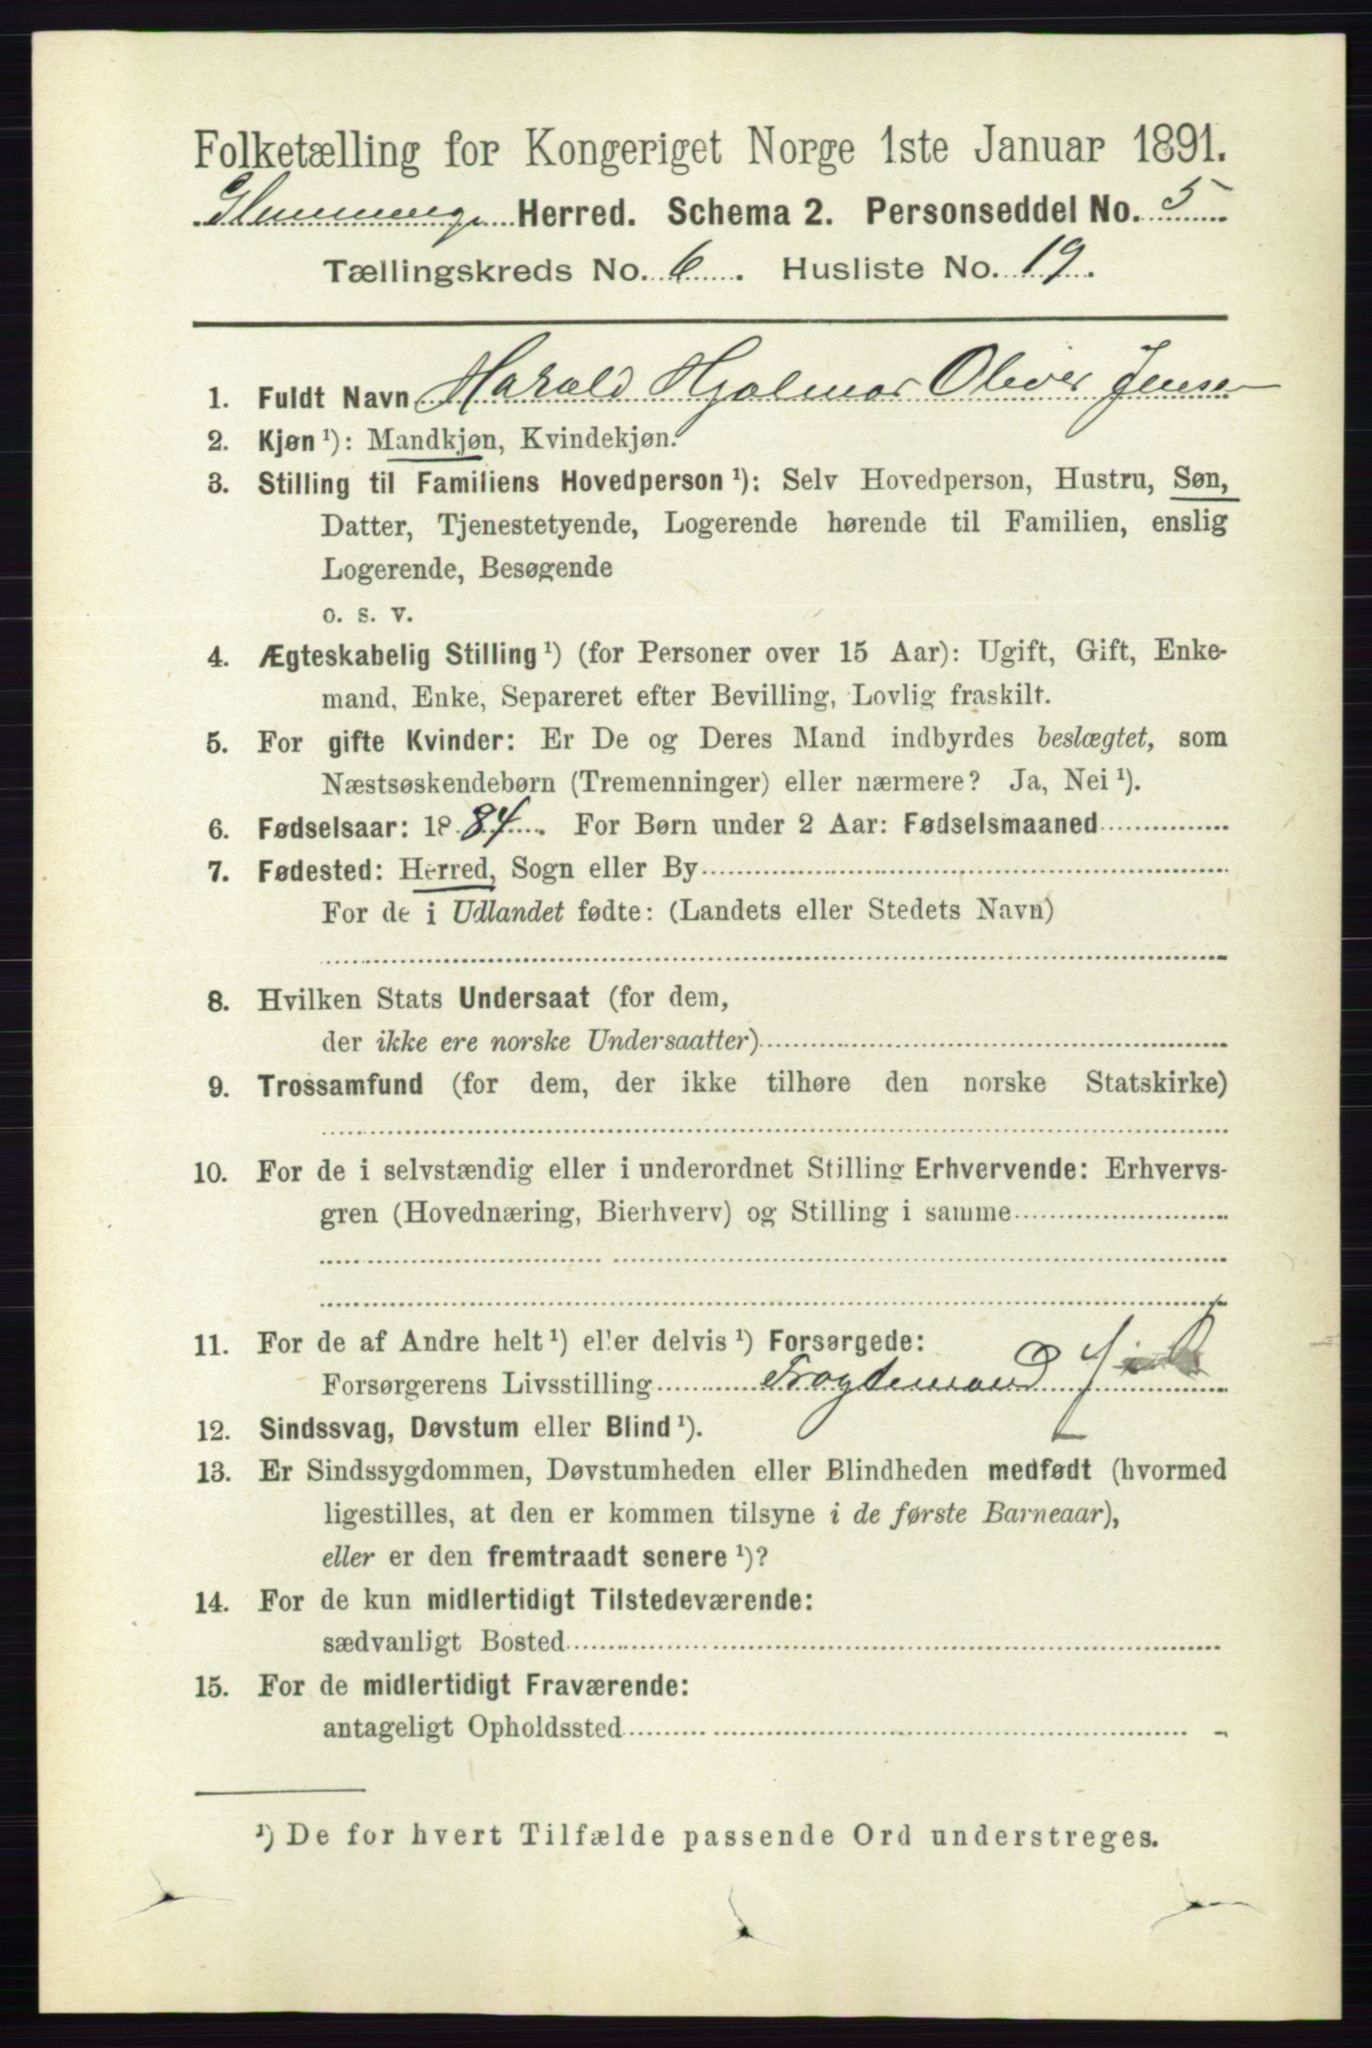 Folketælling for Kongeriget Norge 1ste Januar 1891.
Glemminge Herred. Schema 2. Personseddel No. 5
Tællingskreds No. 6. Husliste No. 19.
1. Fuldt Navn Harald Hjalmar Oliver Jensen
2. Kjøn ¹): Mandkjøn, Kvindekjøn.
3. Stilling til Familiens Hovedperson ¹): Selv Hovedperson, Hustru, Søn,
Datter, Tjenestetyende, Logerende hørende til Familien, enslig
Logerende, Besøgende
o. s. v.
4. Ægteskabelig Stilling ¹) (for Personer over 15 Aar): Ugift, Gift, Enke-
mand, Enke, Separeret efter Bevilling, Lovlig fraskilt.
5. For gifte Kvinder: Er De og Deres Mand indbyrdes beslægtet, som
Næstsøskendebørn (Tremenninger) eller nærmere? Ja, Nei ¹).
6. Fødselsaar: 1884. For Børn under 2 Aar: Fødselsmaaned
7. Fødested: Herred, Sogn eller By
For de i Udlandet fødte: (Landets eller Stedets Navn)
8. Hvilken Stats Undersaat (for dem,
der ikke ere norske Undersaatter)
9. Trossamfund (for dem, der ikke tilhøre den norske Statskirke)
10. For de i selvstændig eller i underordnet Stilling Erhvervende: Erhvervs-
gren (Hovednæring, Bierhverv) og Stilling i samme
11. For de af Andre helt ¹) eller delvis ¹) Forsørgede:
Forsørgerens Livsstilling Fragtemand
12. Sindssvag, Døvstum eller Blind ¹).
13. Er Sindssygdommen, Døvstumheden eller Blindheden medfødt (hvormed
ligestilles, at den er kommen tilsyne i de første Barneaar),
eller er den fremtraadt senere ¹)?
14. For de kun midlertidigt Tilstedeværende:
sædvanligt Bosted
15. For de midlertidigt Fraværende:
antageligt Opholdssted
¹) De for hvert Tilfælde passende Ord understreges.